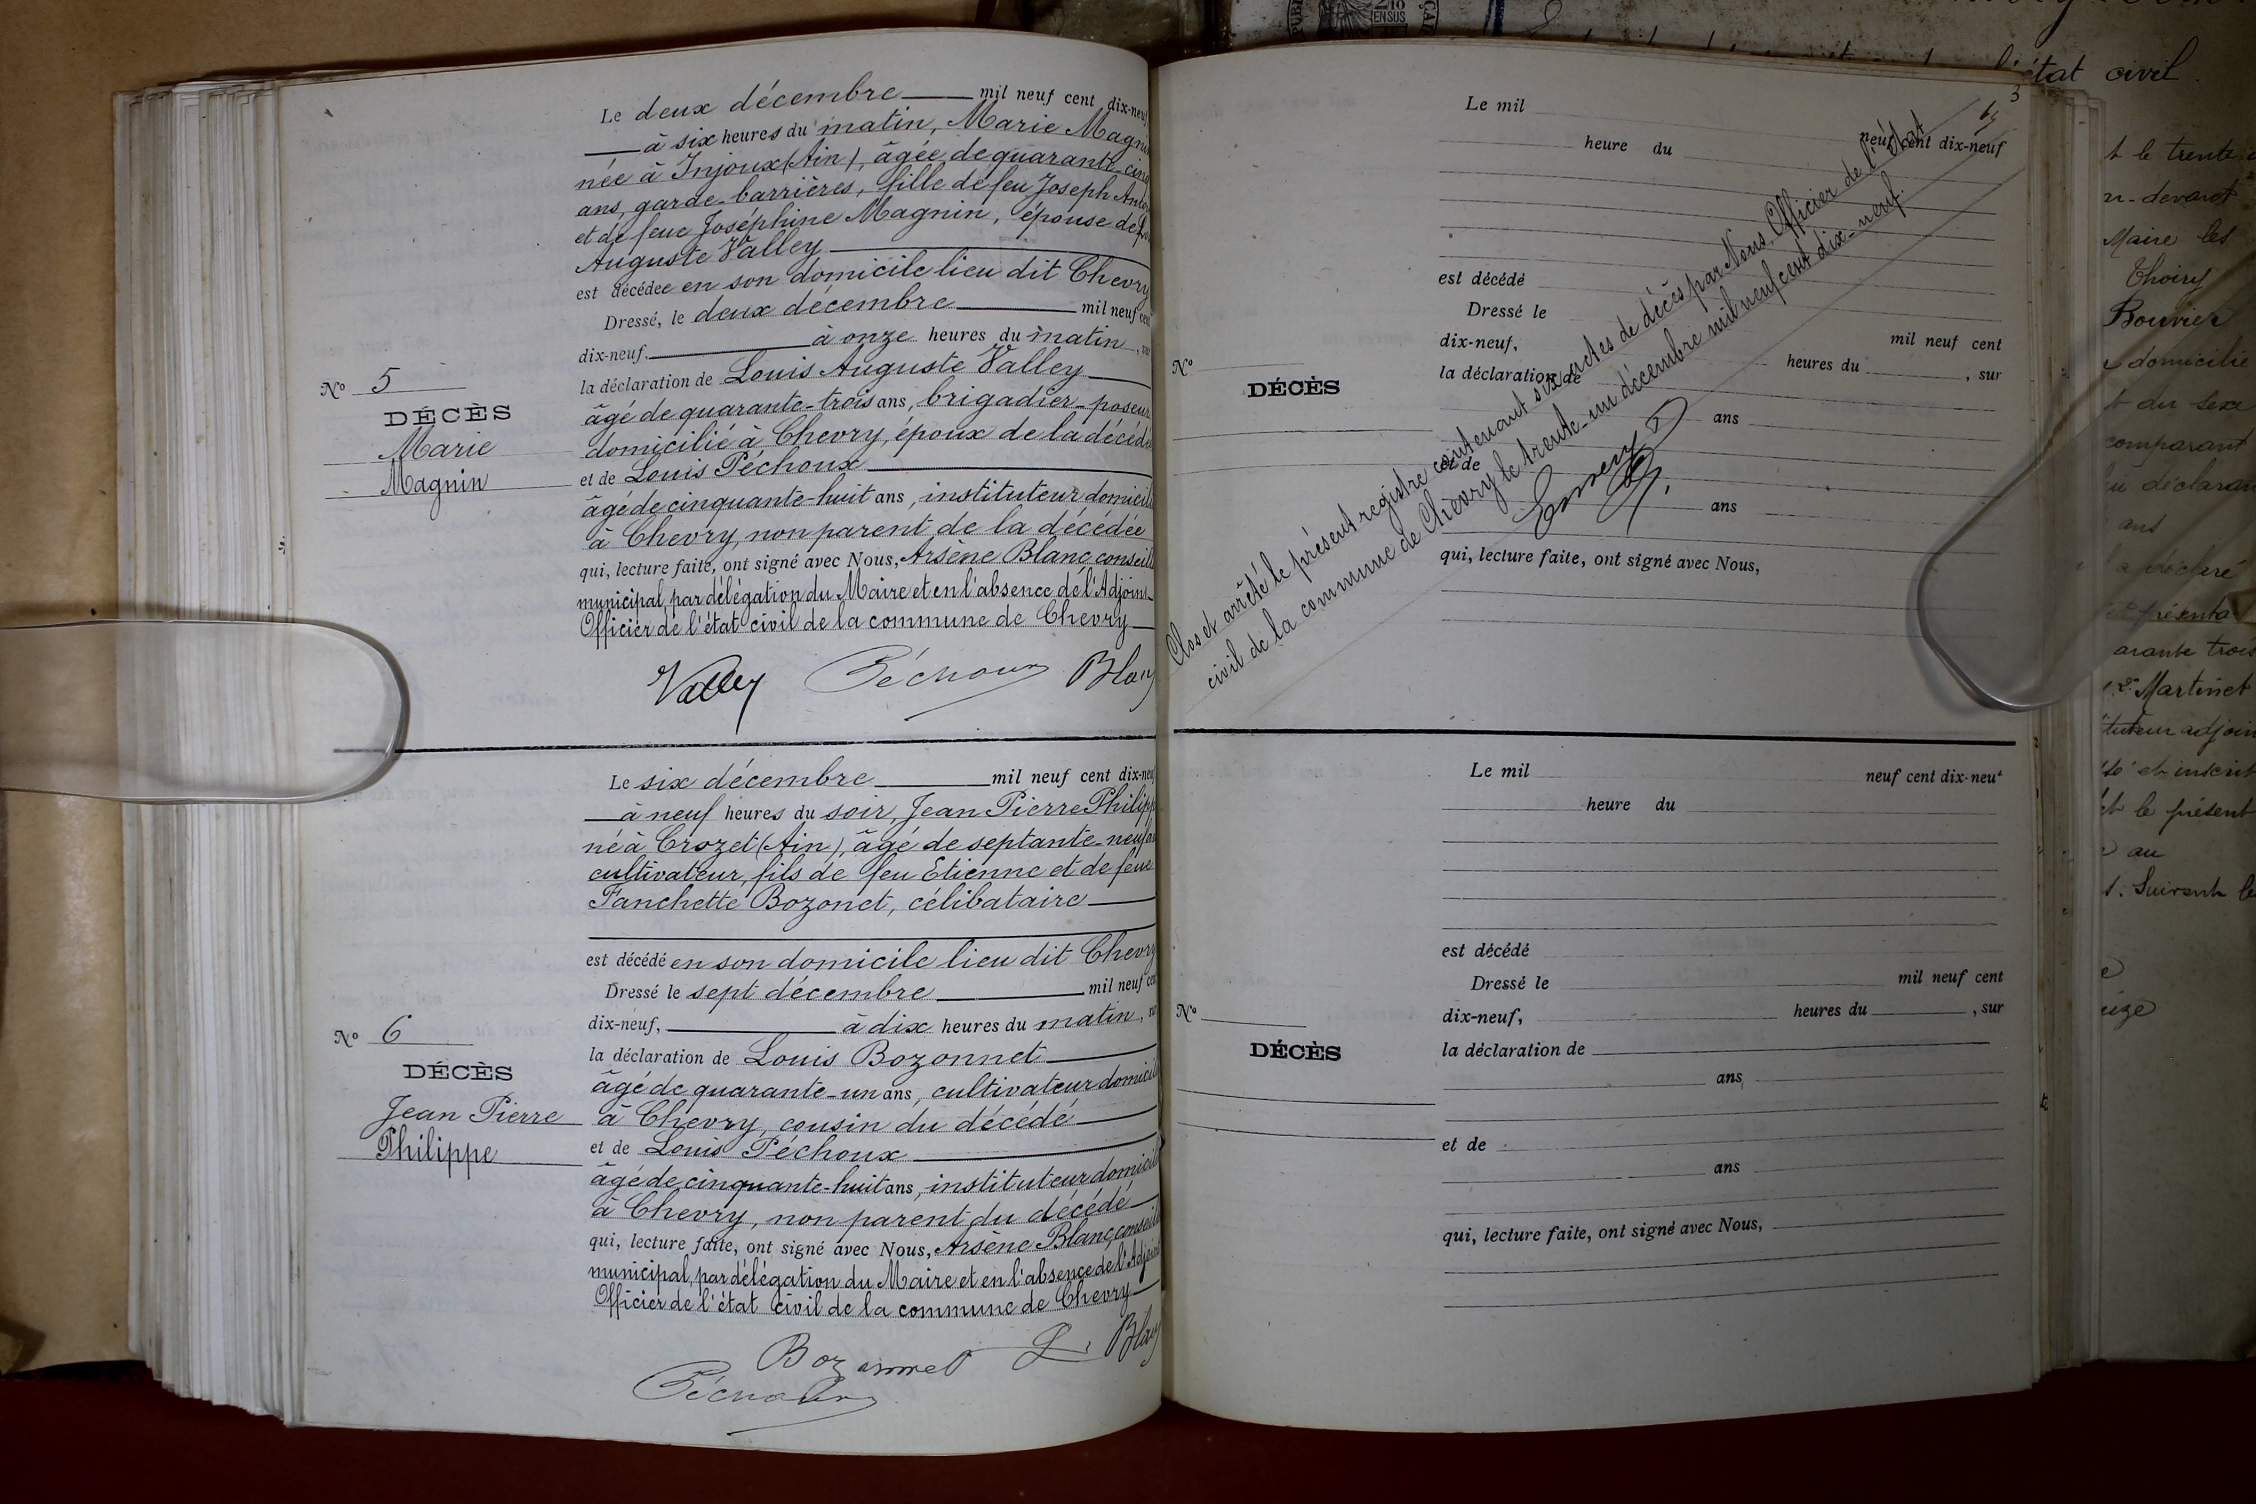 Le deux décembre mil neuf cent dix-neuf
à six heures du matin, Marie Magnin
née à Injoux (Ain), âgée de quarante-cinq
ans, garde-barrières, fille de feu Joseph
et de feue Joséphine Magnin, épouse de
Auguste Valley
est décédée en son domicile lieu dit Chevry
Dressé, le deux décembre mil neuf cent
dix-neuf, à onze heures du matin, sur
la déclaration de Louis Auguste Valley
âgé de quarante-trois ans, brigadier-poseur
domicilié à Chevry, époux de la décédée
et de Louis Péchoux
âgé de cinquante-huit ans, instituteur domicilié
à Chevry, non parent de la décédée
qui, lecture faite, ont signé avec Nous, Arsène Blanc conseiller
municipal, par délégation du Maire et en l'absence de l'Adjoint
Officier de l'état civil de la commune de Chevry
Valley Péchoux Blanc
N° 5
DÉCÈS
Marie
Magnin
Le six décembre mil neuf cent dix-neuf
à neuf heures du soir, Jean Pierre Philippe
né à Crozet (Ain), âgé de septante-neuf ans
cultivateur, fils de feu Etienne et de feue
Fanchette Bozonet, célibataire
est décédé en son domicile lieu dit Chevry
Dressé le sept décembre mil neuf cent
dix-neuf, à dix heures du matin, sur
la déclaration de Louis Bozonnet
âgé de quarante-un ans, cultivateur domicilié
à Chevry, cousin du décédé
et de Louis Péchoux
âgé de cinquante-huit ans, instituteur domicilié
à Chevry, non parent du décédé
qui, lecture faite, ont signé avec Nous, Arsène Blanc, conseiller
municipal, par délégation du Maire et en l'absence de l'Adjoint
Officier de l'état civil de la commune de Chevry
Bozonnet L. Blanc
Péchoux
N° 6
DÉCÈS
Jean Pierre
Philippe
3
Le mil neuf cent dix-neuf
heure du
est décédé
Dressé le mil neuf cent
dix-neuf, heures du , sur
la déclaration de
ans
et de
ans
qui, lecture faite, ont signé avec Nous,
N°
DÉCÈS
Clos et arrêté le présent registre contenant six actes de décès par Nous Officier de l'état
civil de la commune de Chevry le trente-un décembre mil neuf cent dix-neuf.
Emery
Le mil neuf cent dix-neuf
heure du
est décédé
Dressé le mil neuf cent
dix-neuf, heures du , sur
la déclaration de
ans
et de
ans
qui, lecture faite, ont signé avec Nous,
N°
DÉCÈS
état civil.
le trente
devant
Maire les
Thoiry
Bouvier
domicilié
du sexe
comparant
déclaran
ans
a déclaré
présenta
arante trois
Martinet
tuteur adjoin
et inscrit
le présent
au
Suivent le